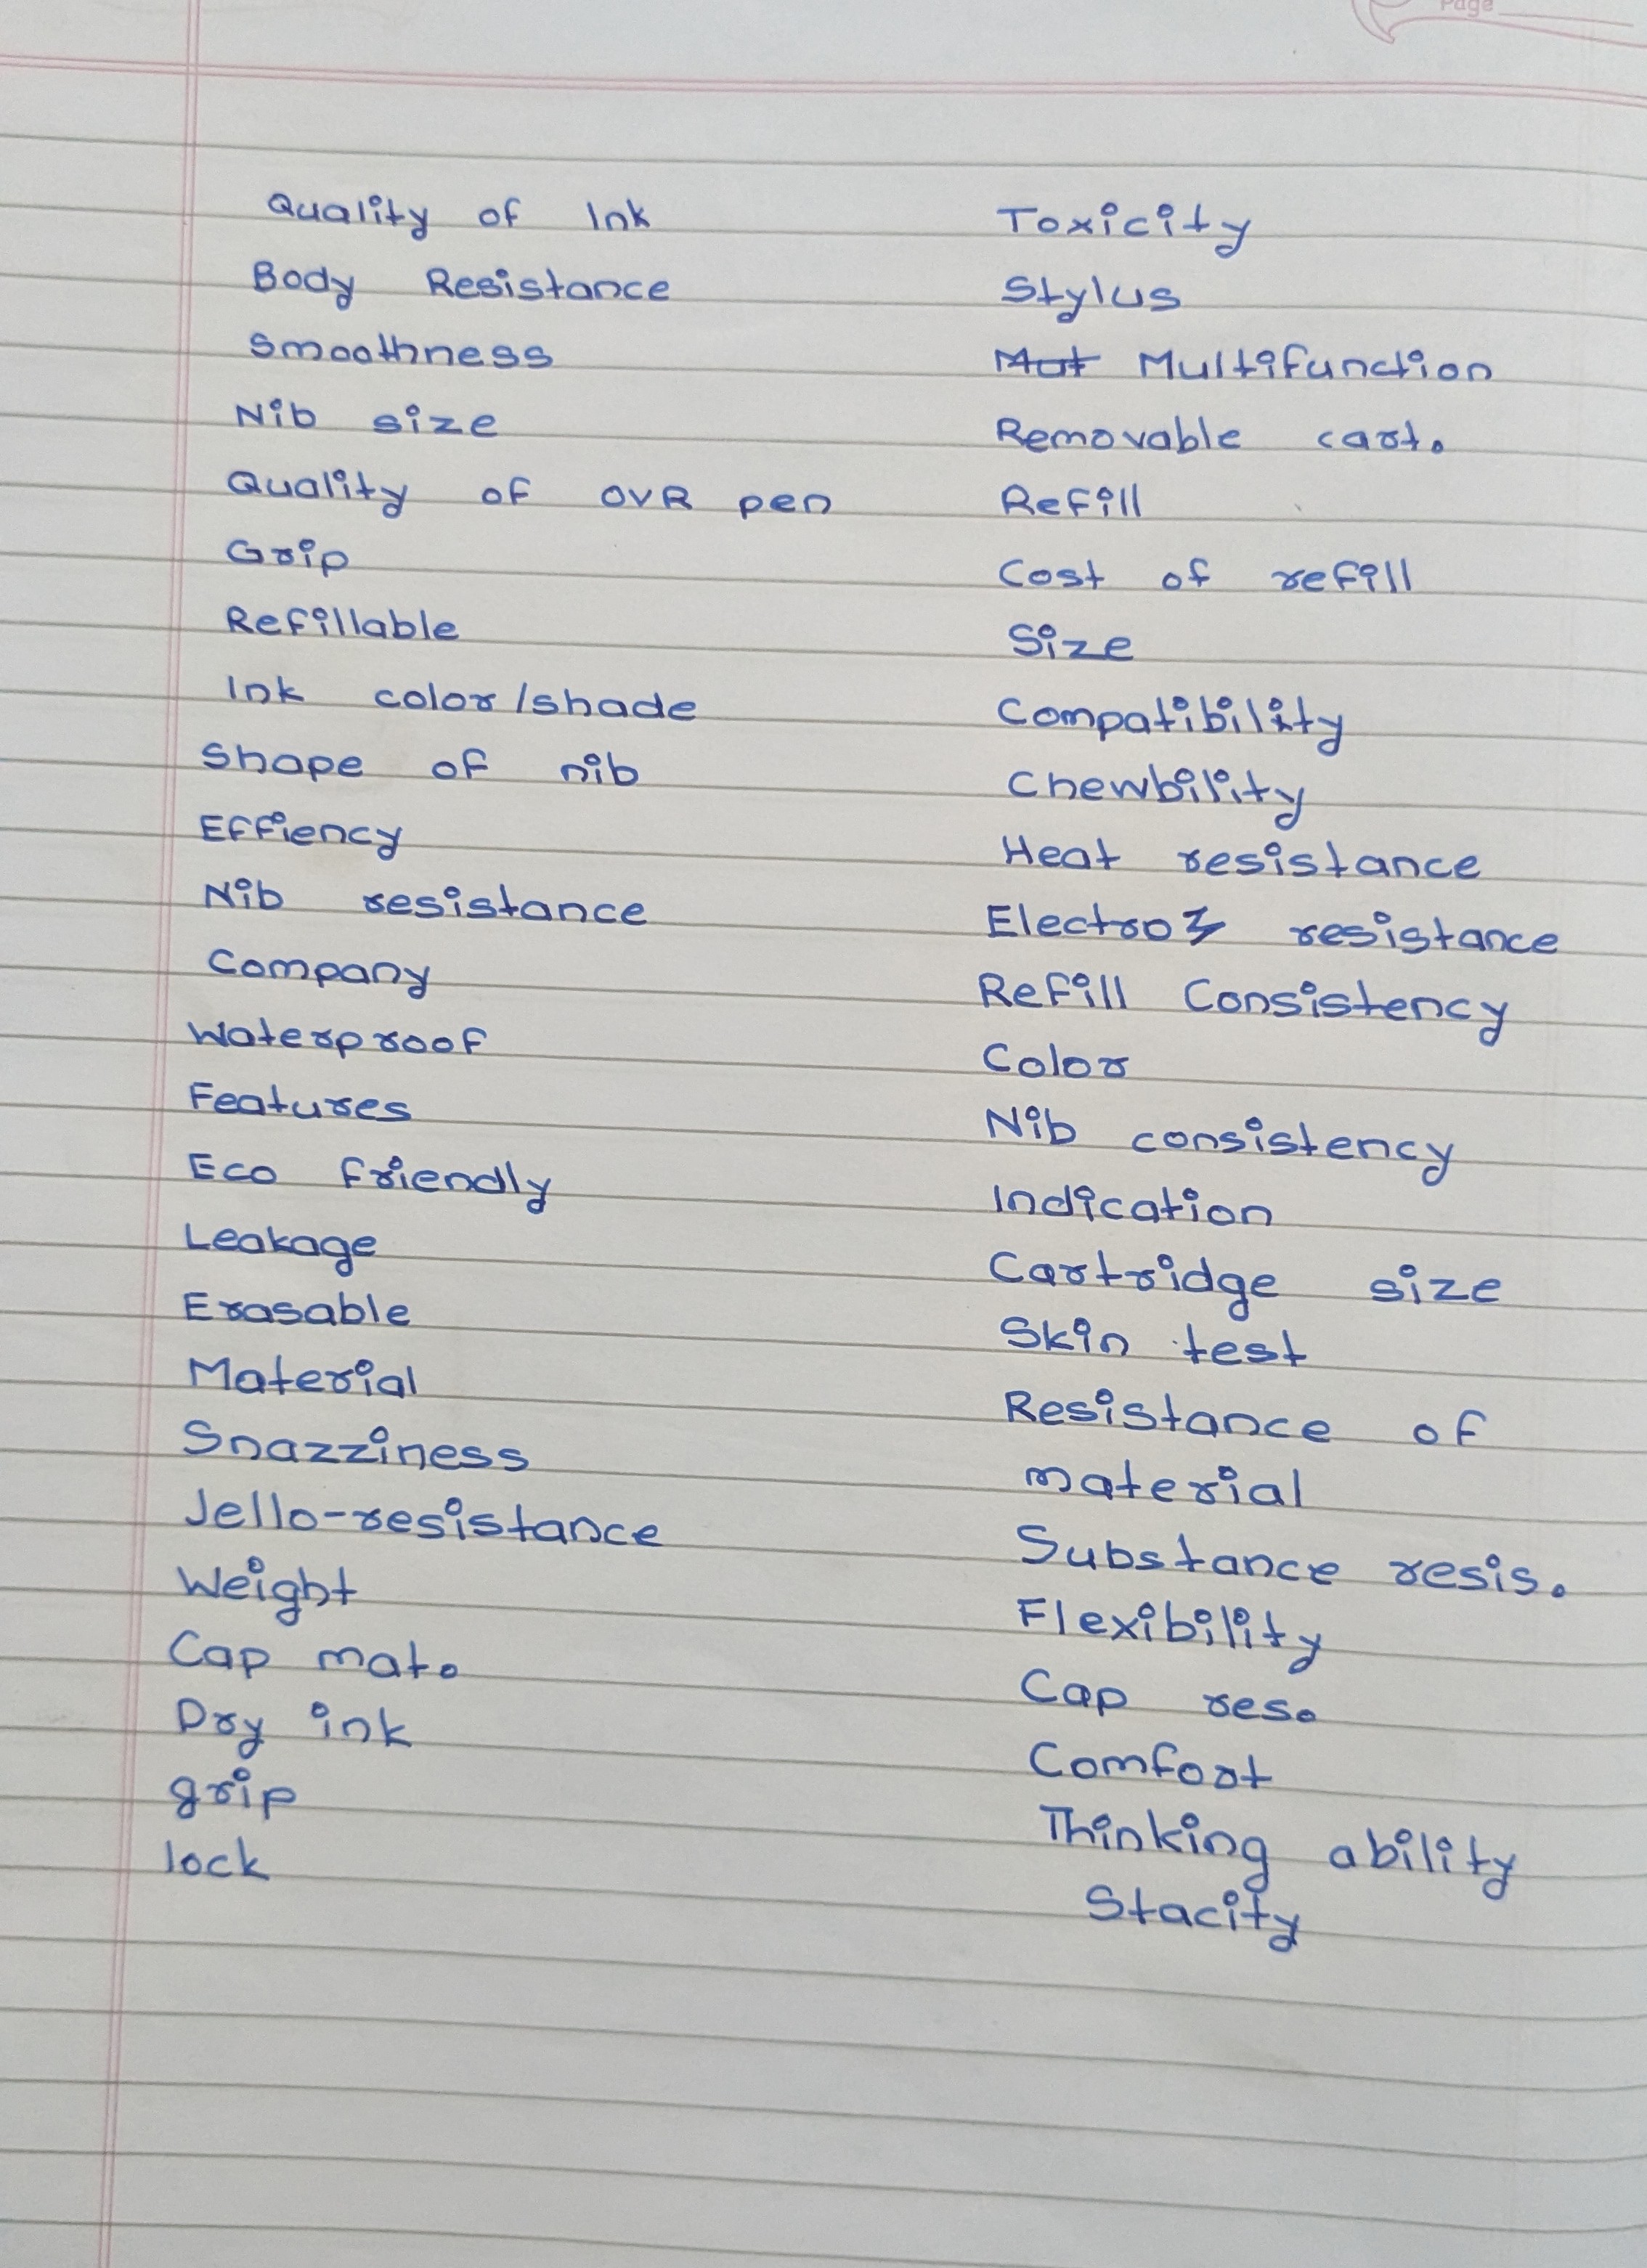 Page
Quality of Ink
Body Resistance
Smoothness
Nib size
Quality of OVR pen
Grip
Refillable
Ink color/shade
Shape of nib
Effiency
Nib resistance
Company
Waterproof
Features
Eco friendly
Leakage
Erasable
Material
Snazziness
Jello-resistance
Weight
Cap mat.
Dry ink
grip
lock
Toxicity
Stylus
Multifunction
Removable cart.
Refill
Cost of refill
Size
Compatibility
Chewbility
Heat resistance
Electro resistance
Refill Consistency
Color
Nib consistency
Indication
Cartridge size
Skin test
Resistance of
material
Substance resis.
Flexibility
Cap res.
Comfort
Thinking ability
Stacity